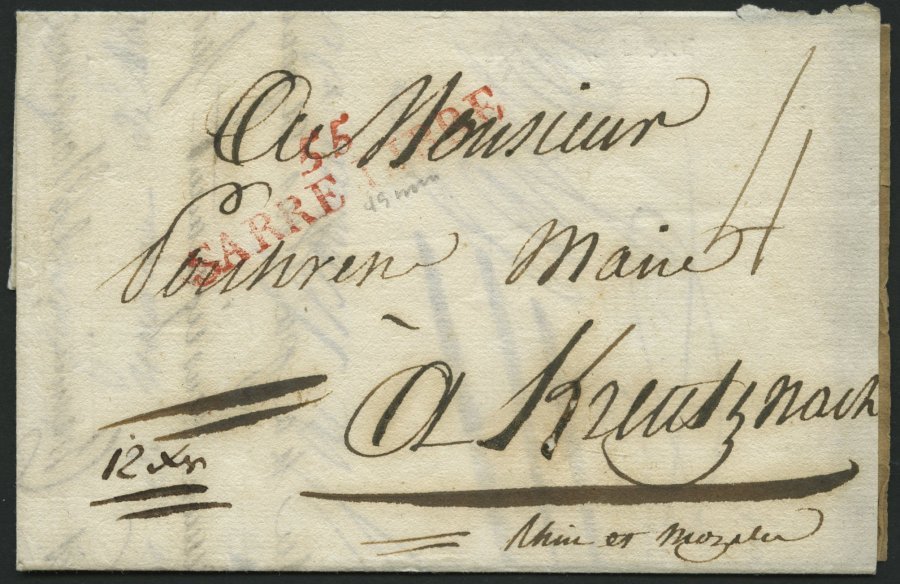 A Monsieur
55
SARRE LIBRE
Maire 4
à Kreutznach
12 Xr
Rhin et Mozelle